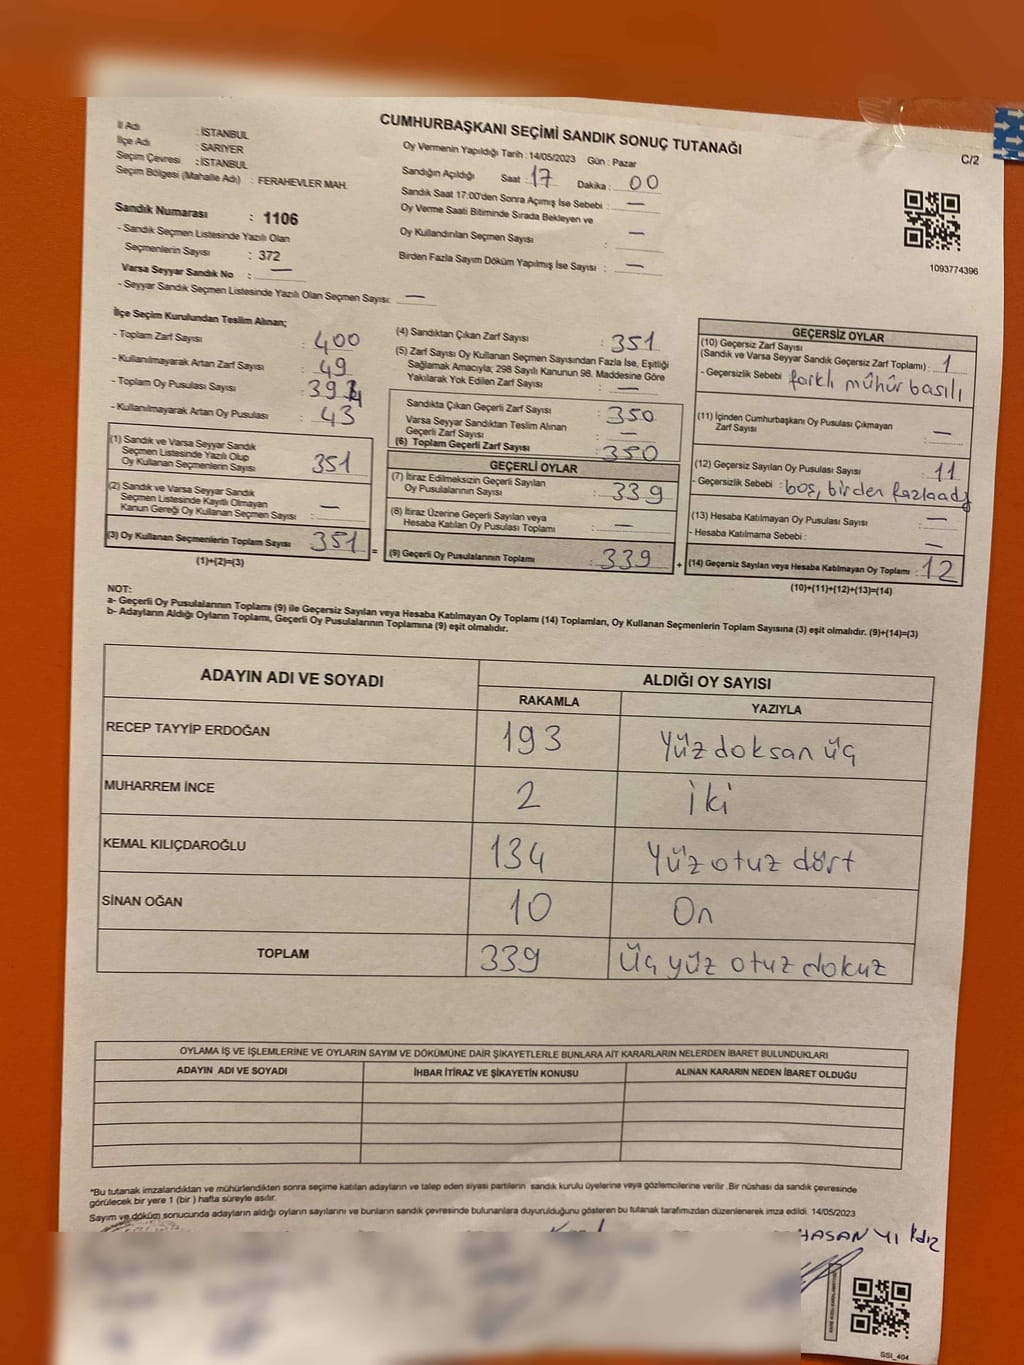 CUMHURBAŞKANI SEÇİMİ SANDIK SONUÇ TUTANAĞI
C/2
İl Adı : İSTANBUL
İlçe Adı : SARIYER
Seçim Çevresi : İSTANBUL
Seçim Bölgesi (Mahalle Adı) : FERAHEVLER MAH.
Sandık Numarası : 1106
- Sandık Seçmen Listesinde Yazılı Olan
Seçmenlerin Sayısı : 372
Varsa Seyyar Sandık No : —
- Seyyar Sandık Seçmen Listesinde Yazılı Olan Seçmen Sayısı: —
Oy Vermenin Yapıldığı Tarih : 14/05/2023 Gün : Pazar
Sandığın Açıldığı Saat 17 Dakika : 00
Sandık Saat 17:00'den Sonra Açımış İse Sebebi : —
Oy Verme Saati Bitiminde Sırada Bekleyen ve
Oy Kullandırılan Seçmen Sayısı : —
Birden Fazla Sayım Döküm Yapılmış İse Sayısı : —
1093774396
İlçe Seçim Kurulundan Teslim Alınan;
- Toplam Zarf Sayısı : 400
- Kullanılmayarak Artan Zarf Sayısı : 49
- Toplam Oy Pusulası Sayısı : 394
- Kullanılmayarak Artan Oy Pusulası : 43
(1) Sandık ve Varsa Seyyar Sandık
Seçmen Listesinde Yazılı Olup
Oy Kullanan Seçmenlerin Sayısı : 351
(2) Sandık ve Varsa Seyyar Sandık
Seçmen Listesinde Kayıtlı Olmayan
Kanun Gereği Oy Kullanan Seçmen Sayısı : —
(3) Oy Kullanan Seçmenlerin Toplam Sayısı : 351 =
(1)+(2)=(3)
(4) Sandıktan Çıkan Zarf Sayısı : 351
(5) Zarf Sayısı Oy Kullanan Seçmen Sayısından Fazla İse, Eşitliği
Sağlamak Amacıyla; 298 Sayılı Kanunun 98. Maddesine Göre
Yakılarak Yok Edilen Zarf Sayısı : —
Sandıkta Çıkan Geçerli Zarf Sayısı : 350
Varsa Seyyar Sandıktan Teslim Alınan
Geçerli Zarf Sayısı : —
(6) Toplam Geçerli Zarf Sayısı : 350
GEÇERLİ OYLAR
(7) İtiraz Edilmeksizin Geçerli Sayılan
Oy Pusulalarının Sayısı : 339
(8) İtiraz Üzerine Geçerli Sayılan veya
Hesaba Katılan Oy Pusulası Toplamı : —
(9) Geçerli Oy Pusulalarının Toplamı : 339 +
GEÇERSİZ OYLAR
(10) Geçersiz Zarf Sayısı
(Sandık ve Varsa Seyyar Sandık Geçersiz Zarf Toplamı) : 1
- Geçersizlik Sebebi : farklı mühür basılı
(11) İçinden Cumhurbaşkanı Oy Pusulası Çıkmayan
Zarf Sayısı : —
(12) Geçersiz Sayılan Oy Pusulası Sayısı : 11
- Geçersizlik Sebebi : boş, birden fazla ady
(13) Hesaba Katılmayan Oy Pusulası Sayısı : —
- Hesaba Katılmama Sebebi : —
(14) Geçersiz Sayılan veya Hesaba Katılmayan Oy Toplamı : 12
(10)+(11)+(12)+(13)=(14)
NOT:
a- Geçerli Oy Pusulalarının Toplamı (9) ile Geçersiz Sayılan veya Hesaba Katılmayan Oy Toplamı (14) Toplamları, Oy Kullanan Seçmenlerin Toplam Sayısına (3) eşit olmalıdır. (9)+(14)=(3)
b- Adayların Aldığı Oyların Toplamı, Geçerli Oy Pusulalarının Toplamına (9) eşit olmalıdır.
ADAYIN ADI VE SOYADI ALDIĞI OY SAYISI
RAKAMLA YAZIYLA
RECEP TAYYİP ERDOĞAN 193 Yüz doksan üç
MUHARREM İNCE 2 İki
KEMAL KILIÇDAROĞLU 134 Yüz otuz dört
SİNAN OĞAN 10 On
TOPLAM 339 Üç yüz otuz dokuz
OYLAMA İŞ VE İŞLEMLERİNE VE OYLARIN SAYIM VE DÖKÜMÜNE DAİR ŞİKAYETLERLE BUNLARA AİT KARARLARIN NELERDEN İBARET BULUNDUKLARI
ADAYIN ADI VE SOYADI İHBAR İTİRAZ VE ŞİKAYETİN KONUSU ALINAN KARARIN NEDEN İBARET OLDUĞU
*Bu tutanak imzalandıktan ve mühürlendikten sonra seçime katılan adayların ve talep eden siyasi partilerin sandık kurulu üyelerine veya gözlemcilerine verilir .Bir nüshası da sandık çevresinde
görülecek bir yere 1 (bir ) hafta süreyle asılır.
Sayım ve döküm sonucunda adayların aldığı oyların sayılarını ve bunların sandık çevresinde bulunanlara duyurulduğunu gösteren bu tutanak tarafımızdan düzenlenerek imza edildi. 14/05/2023
HASAN YIldız
SSI_404